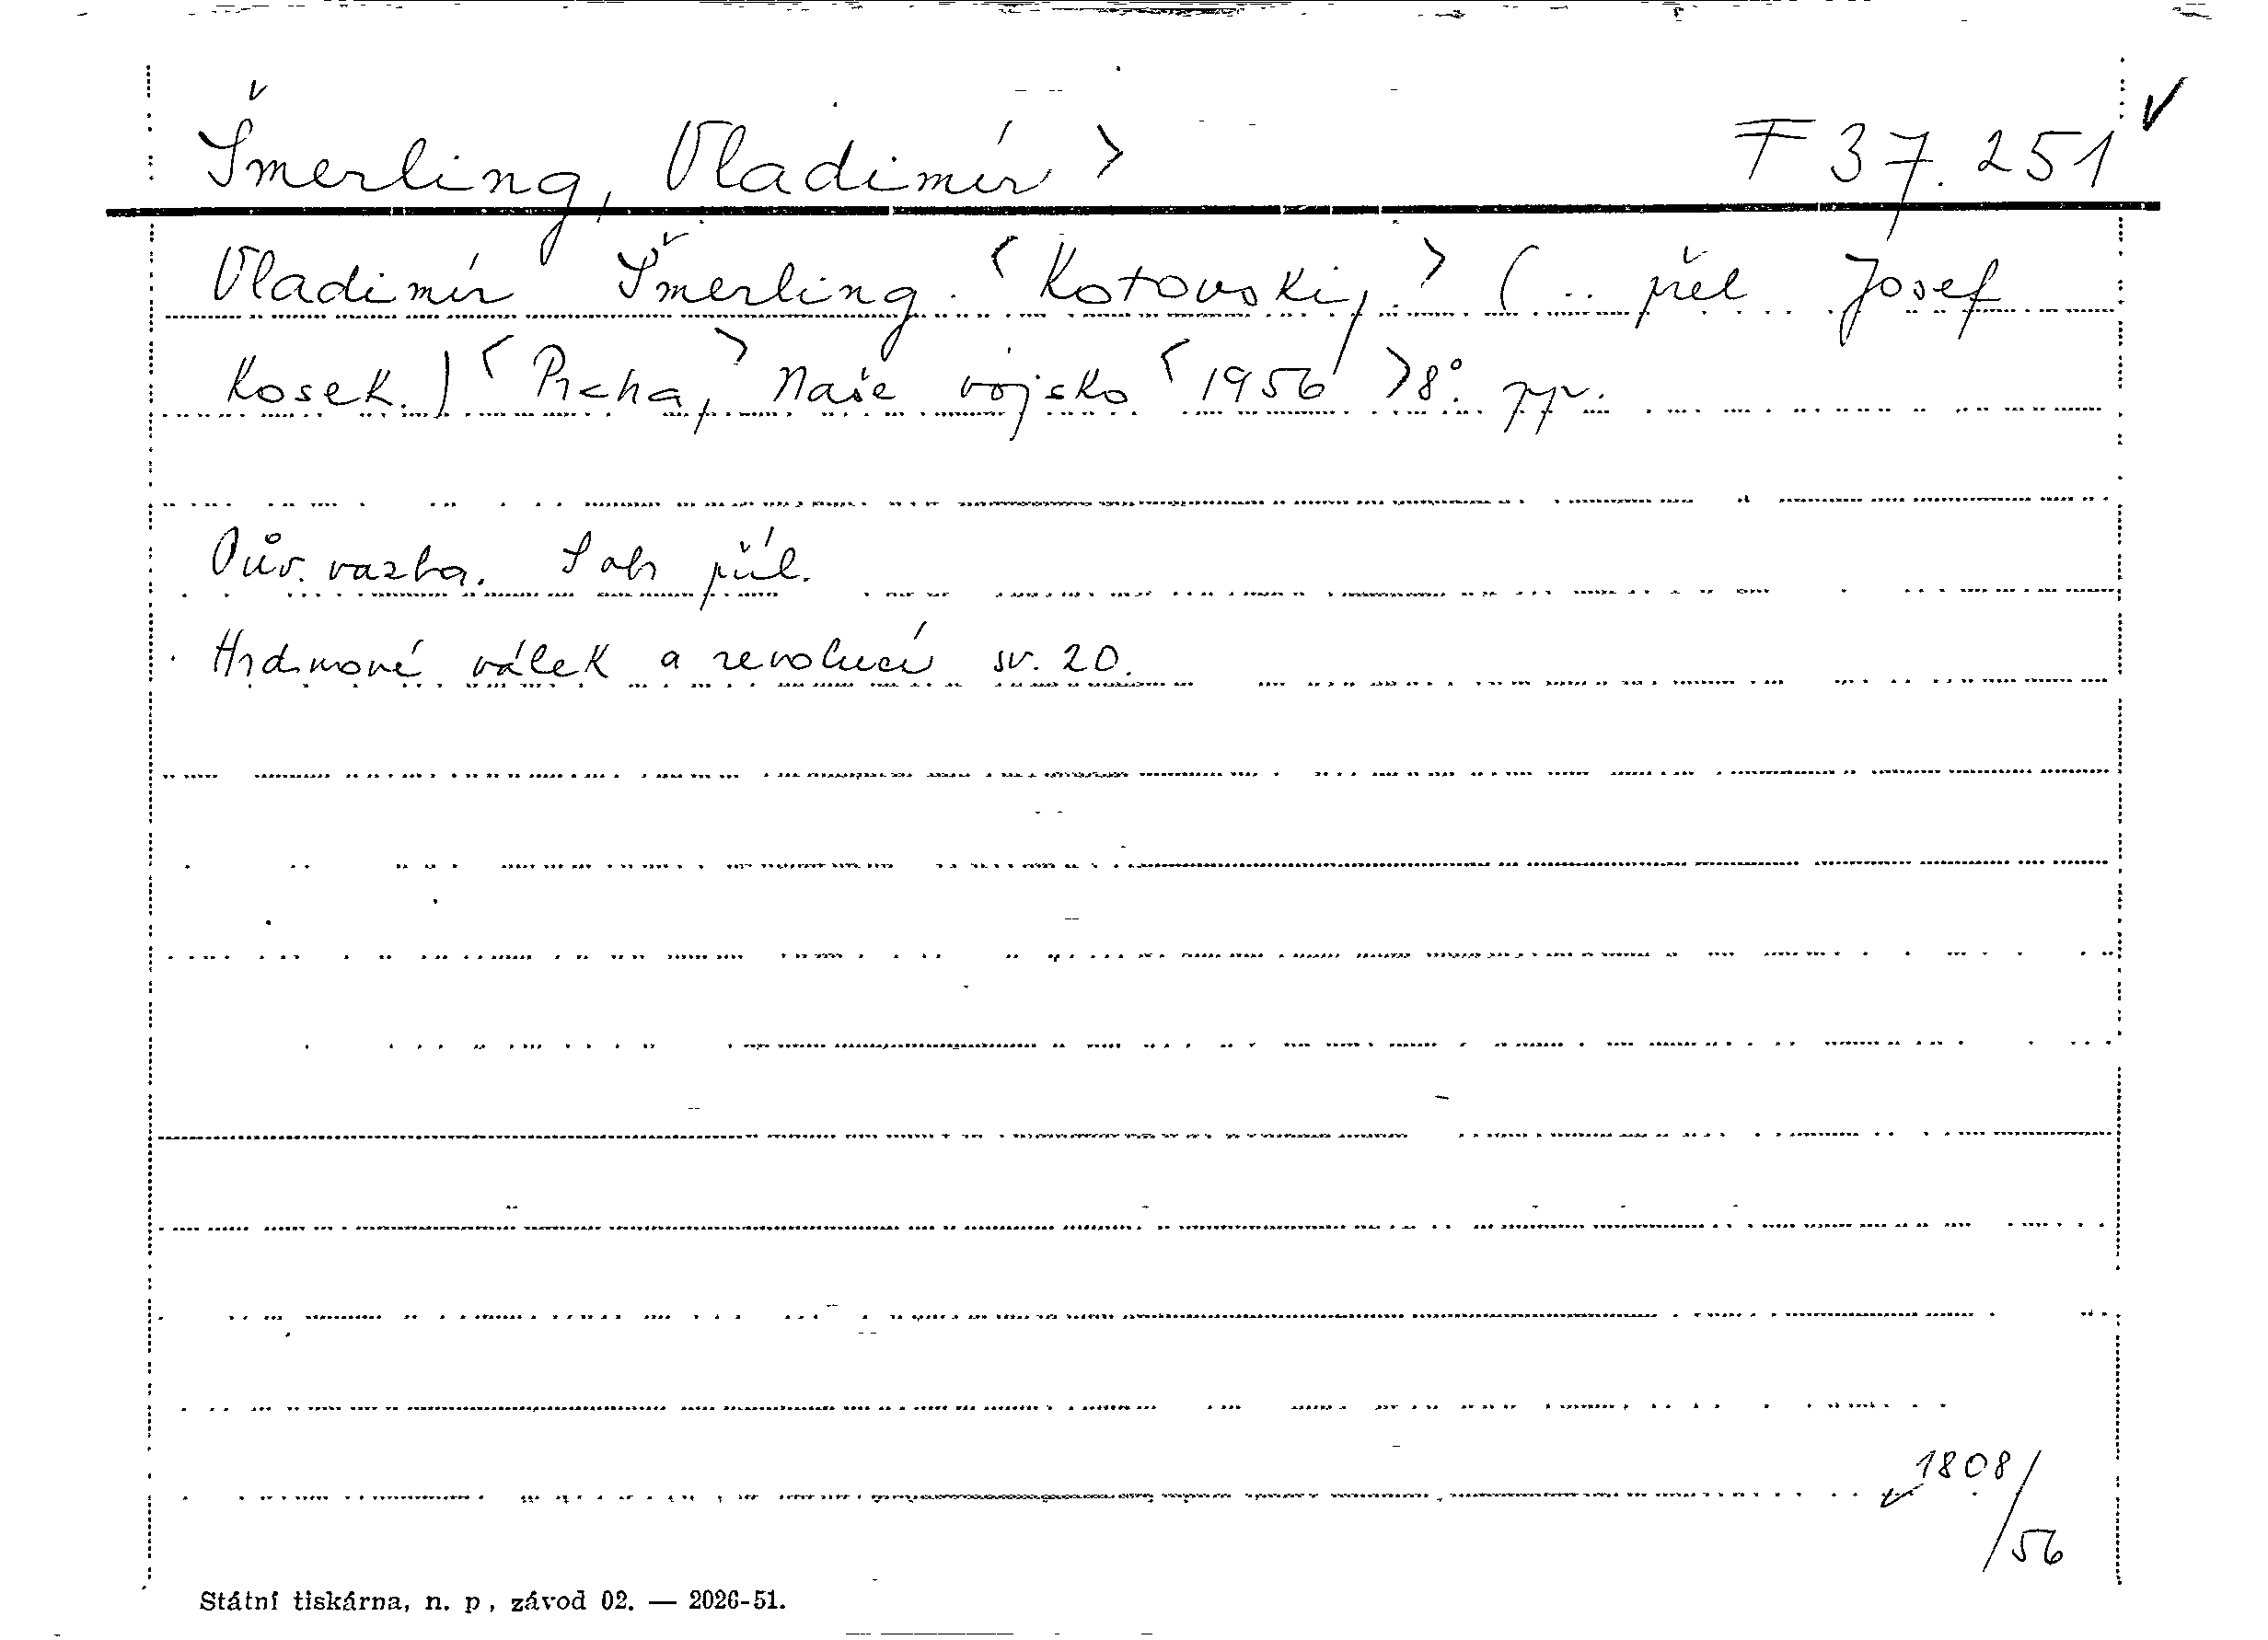 Šmerling, Vladimír > F 37.251
Vladimír Šmerling. <Kotovskij.> (.. přel Josef
Kosek.) <Praha,> Naše vojsko <1956 > 8°. pp.
Pův. vazba. S obr příl.
Hrdinové válek a revolucí sv. 20.
1808/
56
Státní tiskárna, n. p., závod 02. — 2026-51.